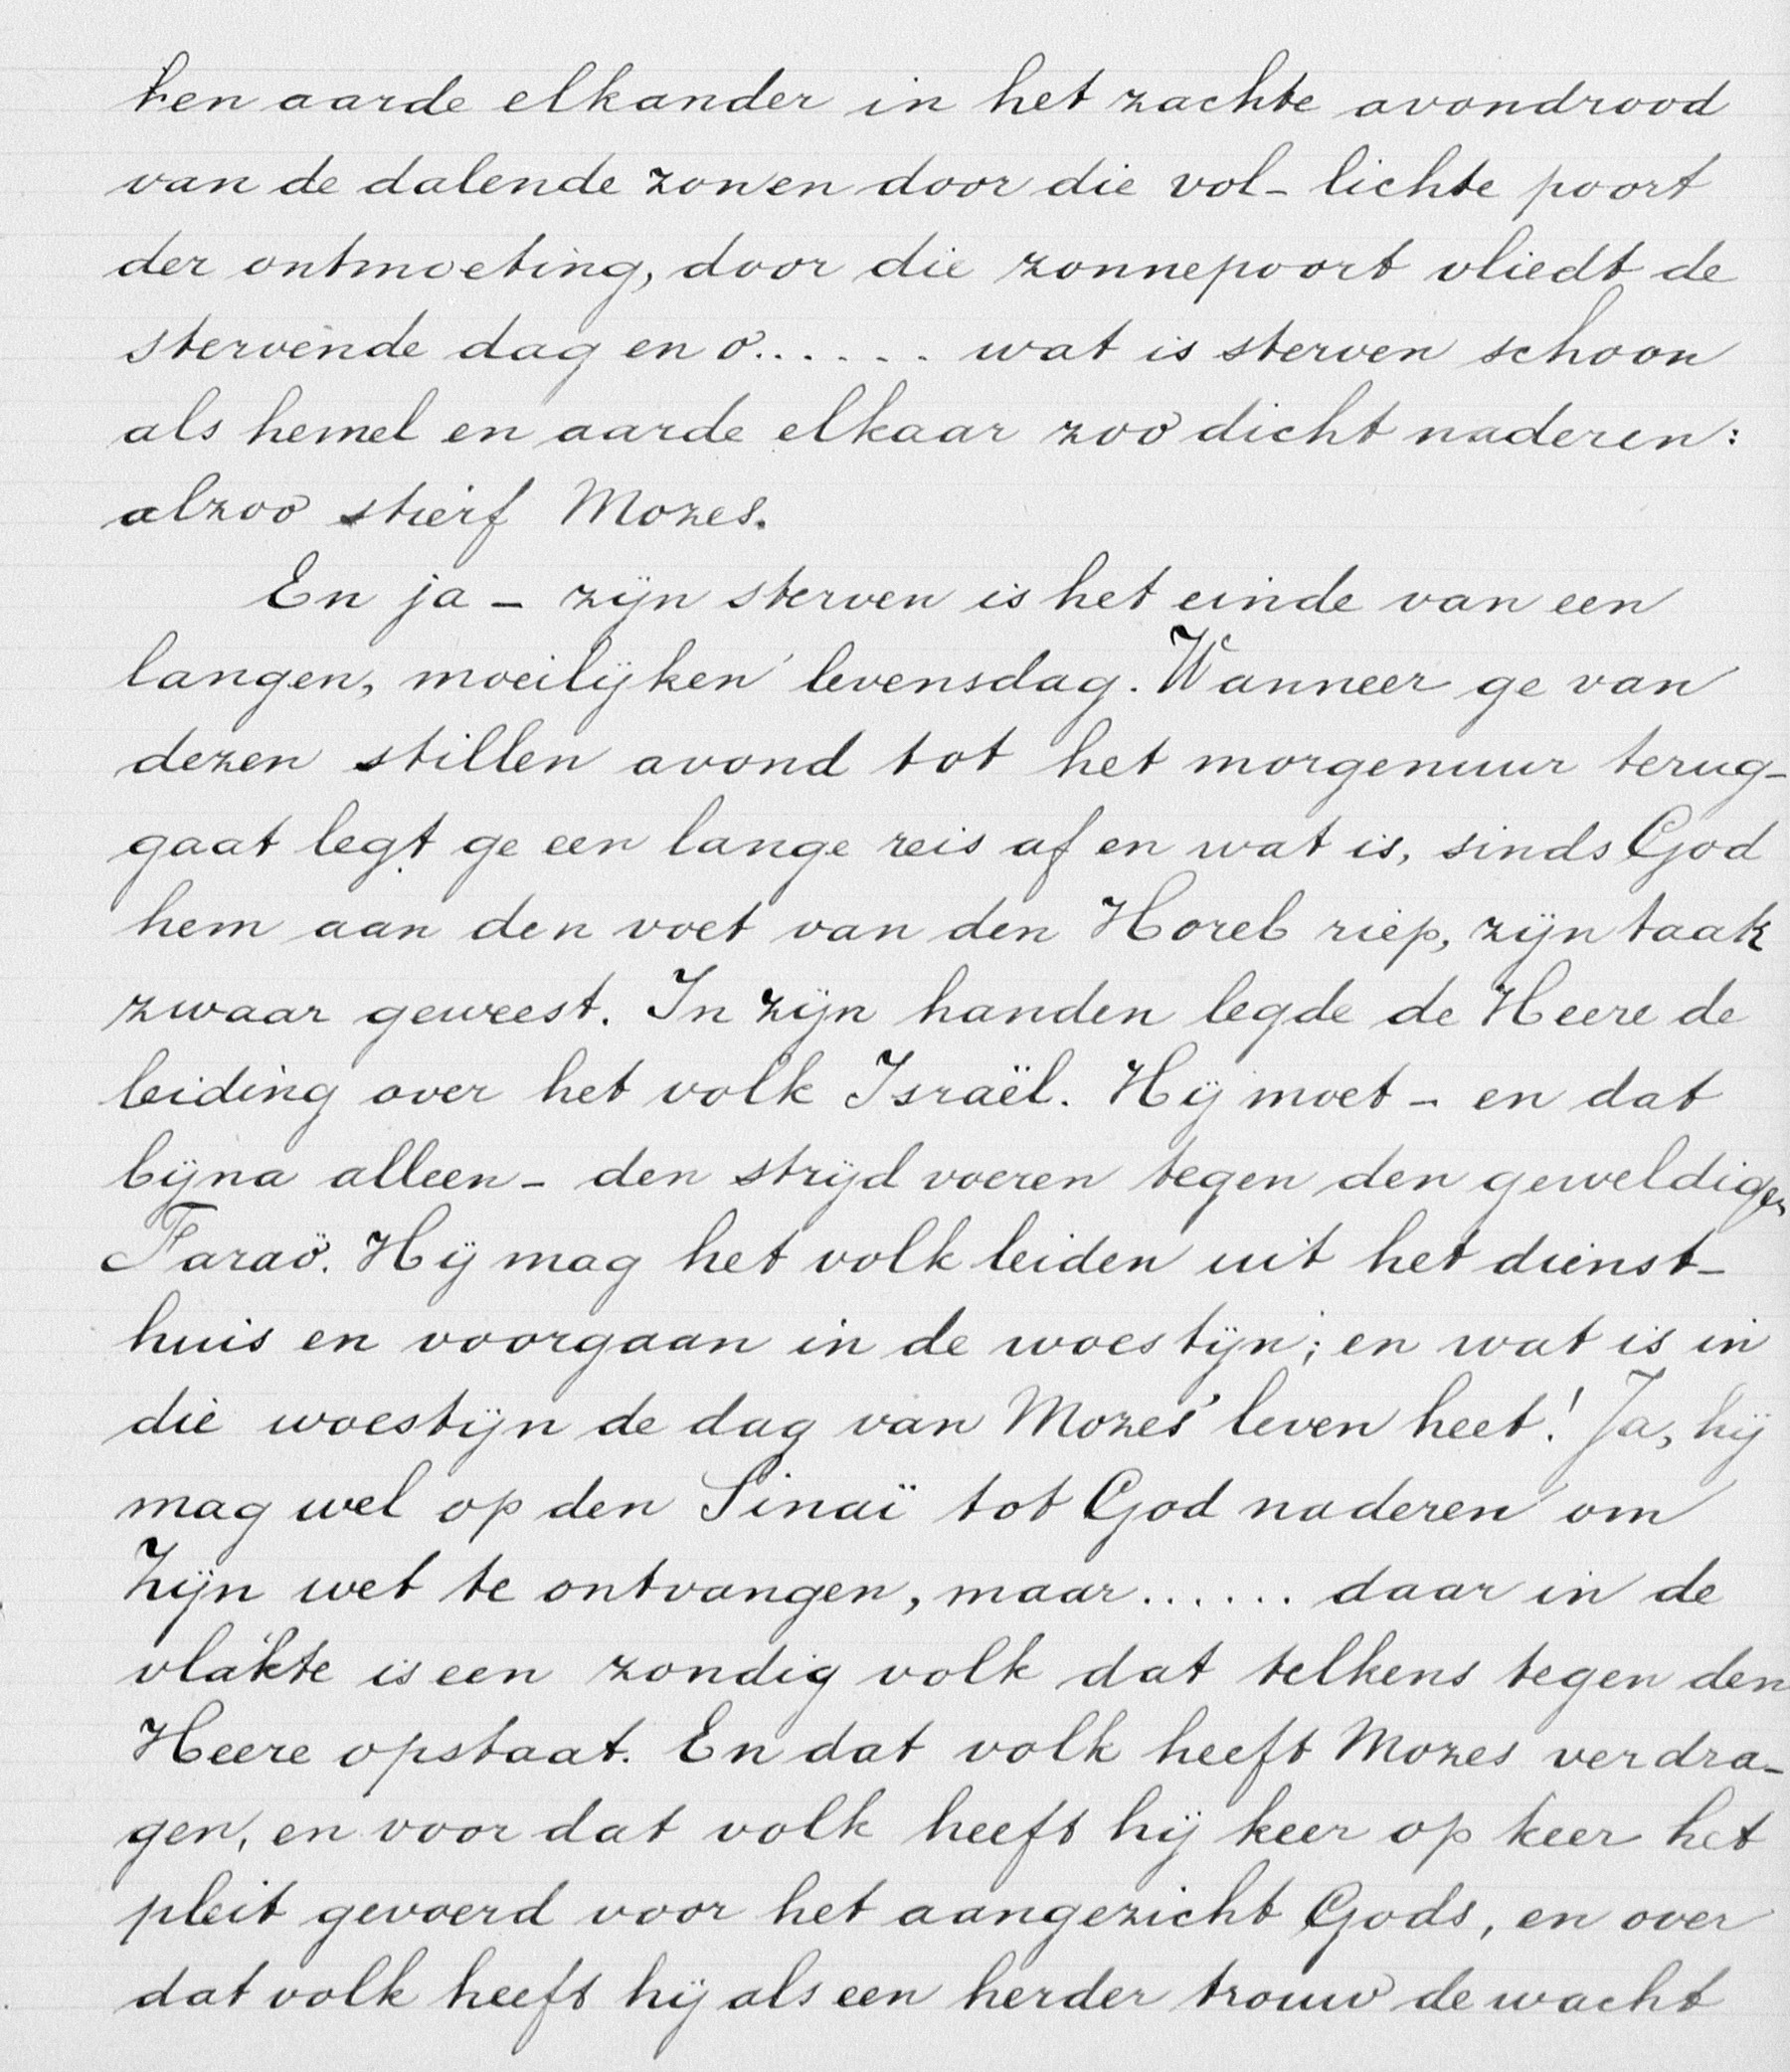 ken aarde elkander in het zachte avondrood
van de dalende zon en door die vol-lichte poort
der ontmoeting, door die zonnepoort vliedt de
stervende dag en o...... wat is sterven schoon
als hemel en aarde elkaar zoo dicht naderen:
alzoo stierf Mozes.
En ja - zijn sterven is het einde van een
langen, moeilijken levensdag. Wanneer ge van
dezen stillen avond tot het morgenuur terug-
gaat legt ge een lange reis af en wat is, sinds God
hem aan den voet van den Horeb riep, zijn taak
zwaar geweest. In zijn handen legde de Heere de
leiding over het volk Israël. Hij moet - en dat
bijna alleen - den strijd voeren tegen den geweldigen
Faraö. Hij mag het volk leiden uit het dienst-
huis en voorgaan in de woestijn; en wat is in
die woestijn de dag van Mozes' leven heet! Ja, hij
mag wel op den Sinaï tot God naderen om
Zijn wet te ontvangen, maar...... daar in de
vlakte is een zondig volk dat telkens tegen den
Heere opstaat. En dat volk heeft Mozes verdra-
gen, en voor dat volk heeft hij keer op keer het
pleit gevoerd voor het aangezicht Gods, en over
dat volk heeft hij als een herder trouw de wacht